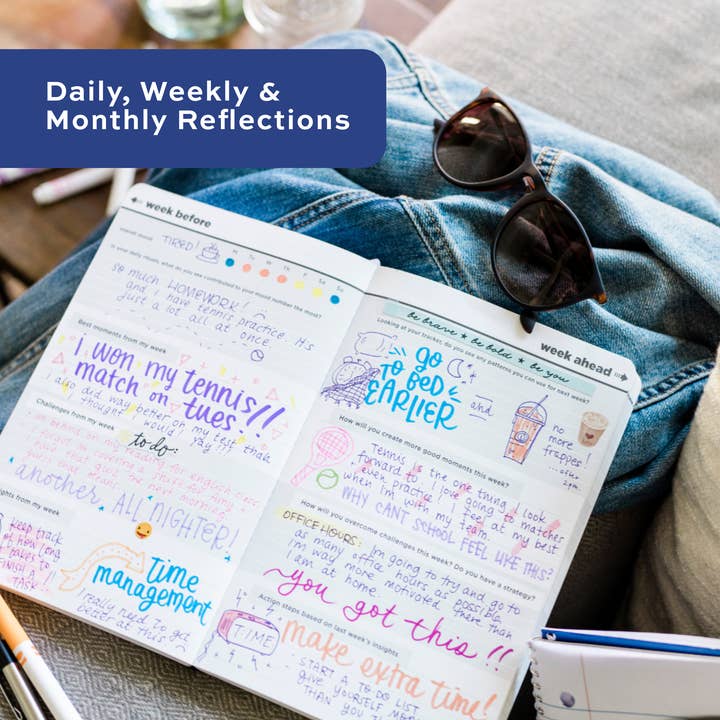 Daily, Weekly &
Monthly Reflections
week before
TIRED!
M T W Th F Sa Su
In your daily rituals, what do you see contributed to your mood number the most?
so much HOMEWORK!
and I have tennis practice. It's
just a lot all at once
Best moments from my week
I won my tennis
match on tues!!
I also did way better on my test than
I thought I would! yay!!!
Challenges from my week
to do:
another ALL NIGHTER!
insights from my week
keep track
of how long
it takes to
FINISH A
TASK
time
management
really need to get
better at this
be brave ★ be bold ★ be you
week ahead
Looking at your tracker, do you see any patterns you can use for next week?
go
to BED
EARLIER
and
no
more
frappes!
after
2pm.
How will you create more good moments this week?
Tennis is the one thing I look
forward to. I love going to matches
+ even practice. I feel at my best
when I'm with my team.
WHY CANT SCHOOL FEEL LIKE THIS?
How will you overcome challenges this week? Do you have a strategy?
OFFICE HOURS: I'm going to try and go to
as many office hours as possible.
I'm way more motivated there than
I am at home.
you got this!!
Action steps based on last week's insights
TIME
make extra time!
START A TO DO LIST
GIVE YOURSELF MORE
THAN YOU